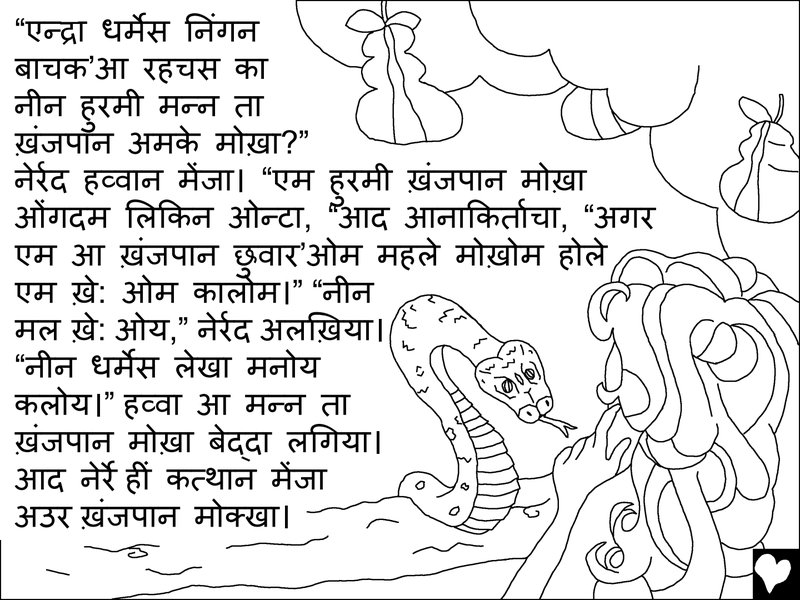 “एन्द्रा धर्मेस निंगन
बाचक’आ रहचस का
नीन हुरमी मन्न ता
ख़ंजपान अमके मोख़ा?”
नेर्रद हव्वान मेंजा। “एम हुरमी ख़ंजपान मोख़ा
ओंगदम लिकिन ओन्टा, “आद आनाकिर्ताचा, “अगर
एम आ ख़ंजपान छुवार’ओम महले मोख़ोम होले
एम ख़े: ओम कालोम।” “नीन
मल ख़े: ओय,” नेर्रद अलख़िया।
“नीन धर्मेस लेखा मनोय
कलोय।” हव्वा आ मन्न ता
ख़ंजपान मोख़ा बेद्दा लगिया।
आद नेर्रे हीं कत्थान मेंजा
अउर ख़ंजपान मोक्खा।